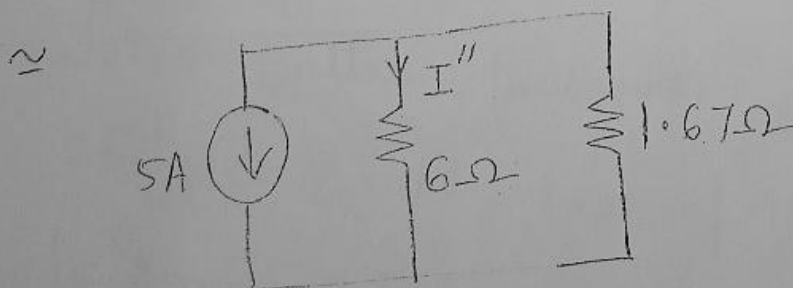 ≃
I"
5A
6Ω
1.67Ω